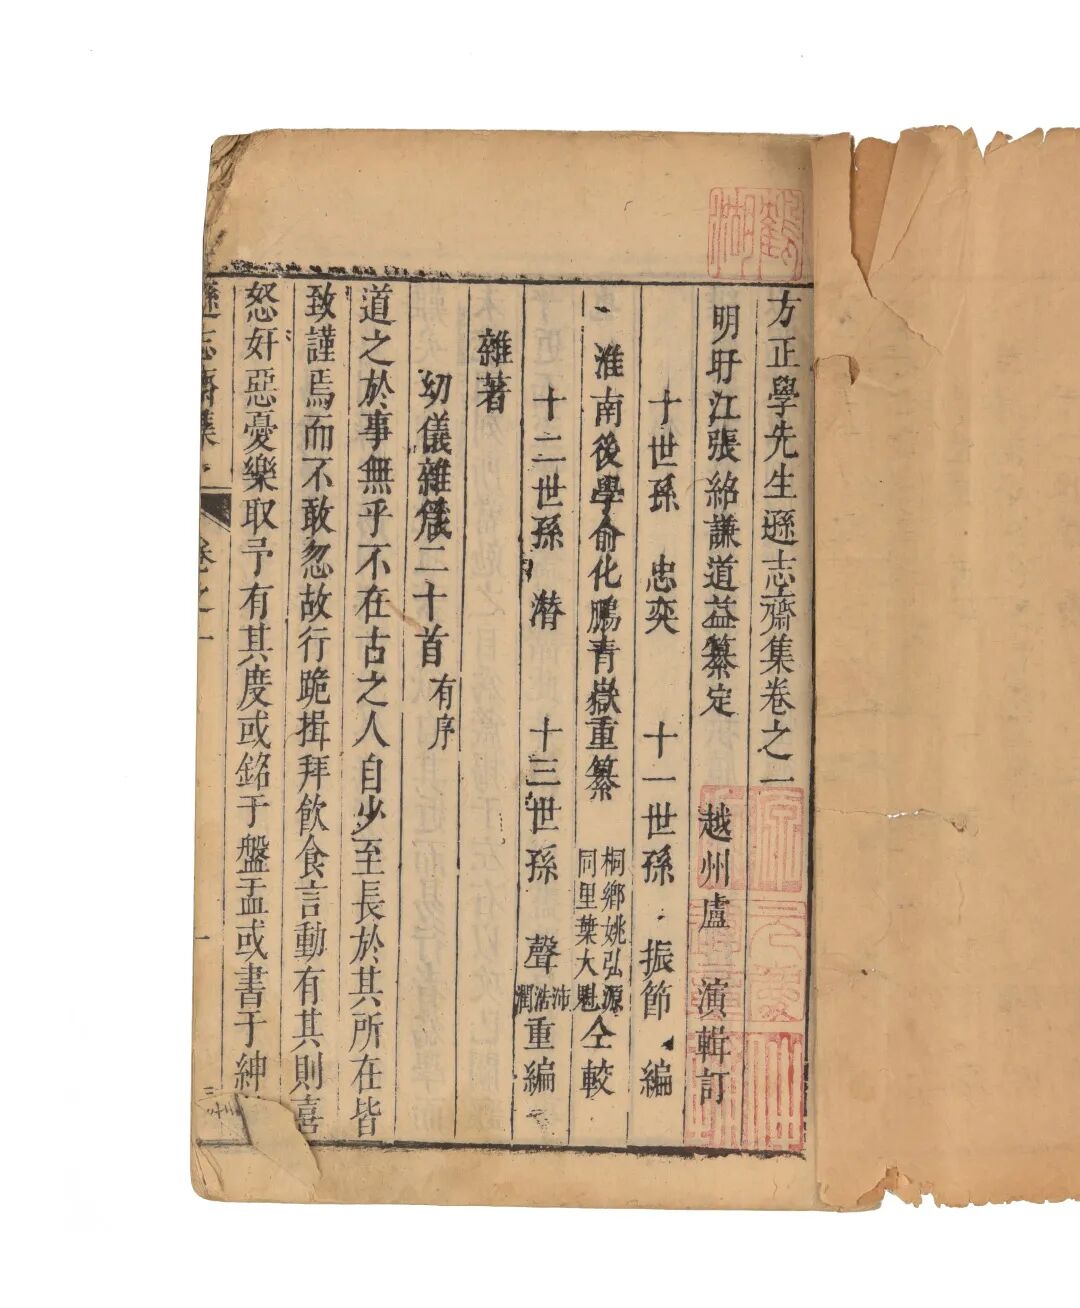 方正學先生遜志齋集卷之一
明盱江張紹謙道益纂定　越州盧演輯訂
十世孫　忠奕　十一世孫　振節　編
淮南後學俞化鵬青嶽重纂　桐鄉姚弘源同里葉大魁仝較
十二世孫　潛　十三世孫　聲沛浩潤重編
雜著
幼儀雜箴二十首有序
道之於事無乎不在古之人自少至長於其所在皆
致謹焉而不敢忽故行跪揖拜飲食言動有其則喜
怒好惡憂樂取予有其度或銘于盤盂或書于紳
遜志齋集　卷之一　一